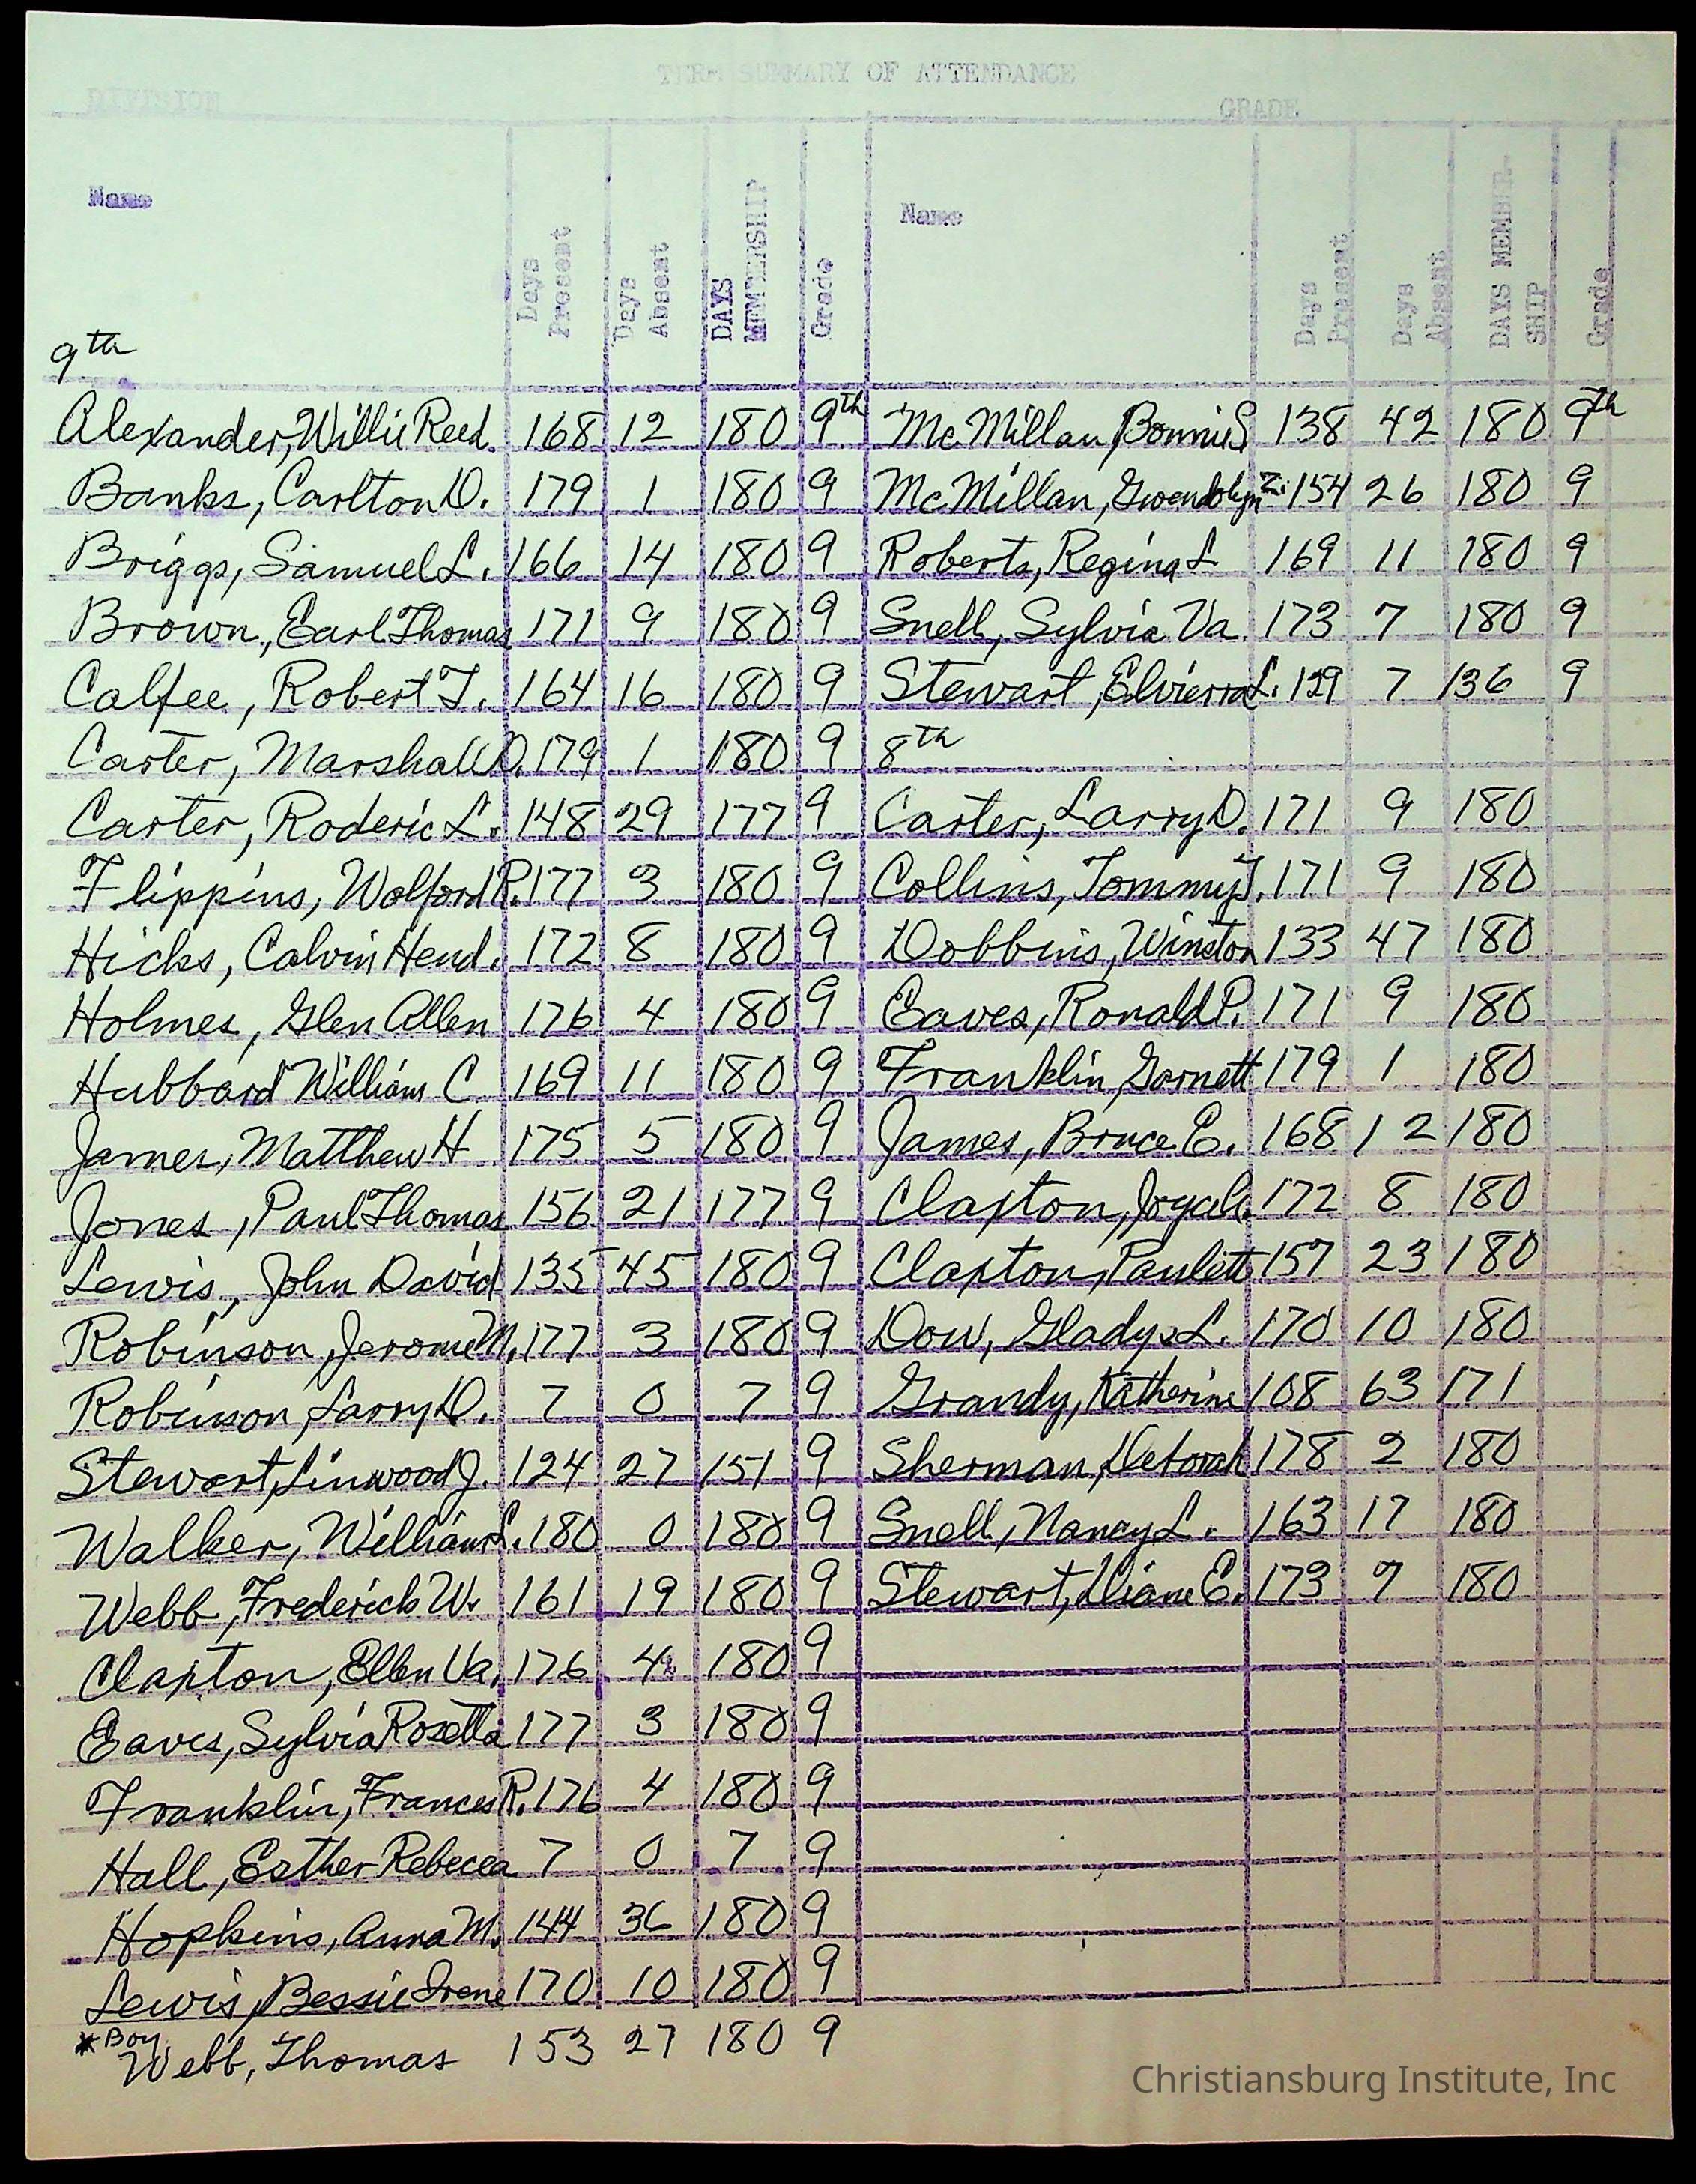 TERM SUMMARY OF ATTENDANCE
DIVISION
GRADE
Name
Days Present
Days Absent
DAYS MEMBERSHIP
Grade
9th
Alexander, Willie Reed. 168 12 180 9th
Banks, Carlton D. 179 1 180 9
Briggs, Samuel L. 166 14 180 9
Brown, Earl Thomas 171 9 180 9
Calfee, Robert T. 164 16 180 9
Carter, Marshall D. 179 1 180 9
Carter, Roderic L. 148 29 177 9
Flippins, Wolford R. 177 3 180 9
Hicks, Calvin Hend. 172 8 180 9
Holmes, Glen Allen 176 4 180 9
Hubbard William C 169 11 180 9
James, Matthew H 175 5 180 9
Jones, Paul Thomas 156 21 177 9
Lewis, John David 135 45 180 9
Robinson, Jerome M. 177 3 180 9
Robinson, Larry D. 7 0 7 9
Stewart, Linwood J. 124 27 151 9
Walker, William L. 180 0 180 9
Webb, Frederick W. 161 19 180 9
Claxton, Ellen Va. 176 4 180 9
Eaves, Sylvia Rosetta 177 3 180 9
Franklin, Frances R. 176 4 180 9
Hall, Esther Rebecca 7 0 7 9
Hopkins, Anna M. 144 36 180 9
Lewis, Bessie Irene 170 10 180 9
* Boy
Webb, Thomas 153 27 180 9
Name
Days Present
Days Absent
DAYS MEMBER-SHIP
Grade
McMillan, Bonnie S 138 42 180 9th
McMillan, Gwendolyn Z. 154 26 180 9
Roberts, Regina L 169 11 180 9
Snell, Sylvia Va. 173 7 180 9
Stewart, Elvierra L. 129 7 136 9
8th
Carter, Larry D. 171 9 180
Collins, Tommy J. 171 9 180
Dobbins, Winston 133 47 180
Eaves, Ronald P. 171 9 180
Franklin, Garnett 179 1 180
James, Bruce E. 168 12 180
Claxton, 172 8 180
Claxton, Paulett 157 23 180
Dow, Gladys L. 170 10 180
Grandy, Katherine 108 63 171
Sherman, Deborah 178 2 180
Snell, Nancy L. 163 17 180
Stewart, Diane E. 173 7 180
Christiansburg Institute, Inc